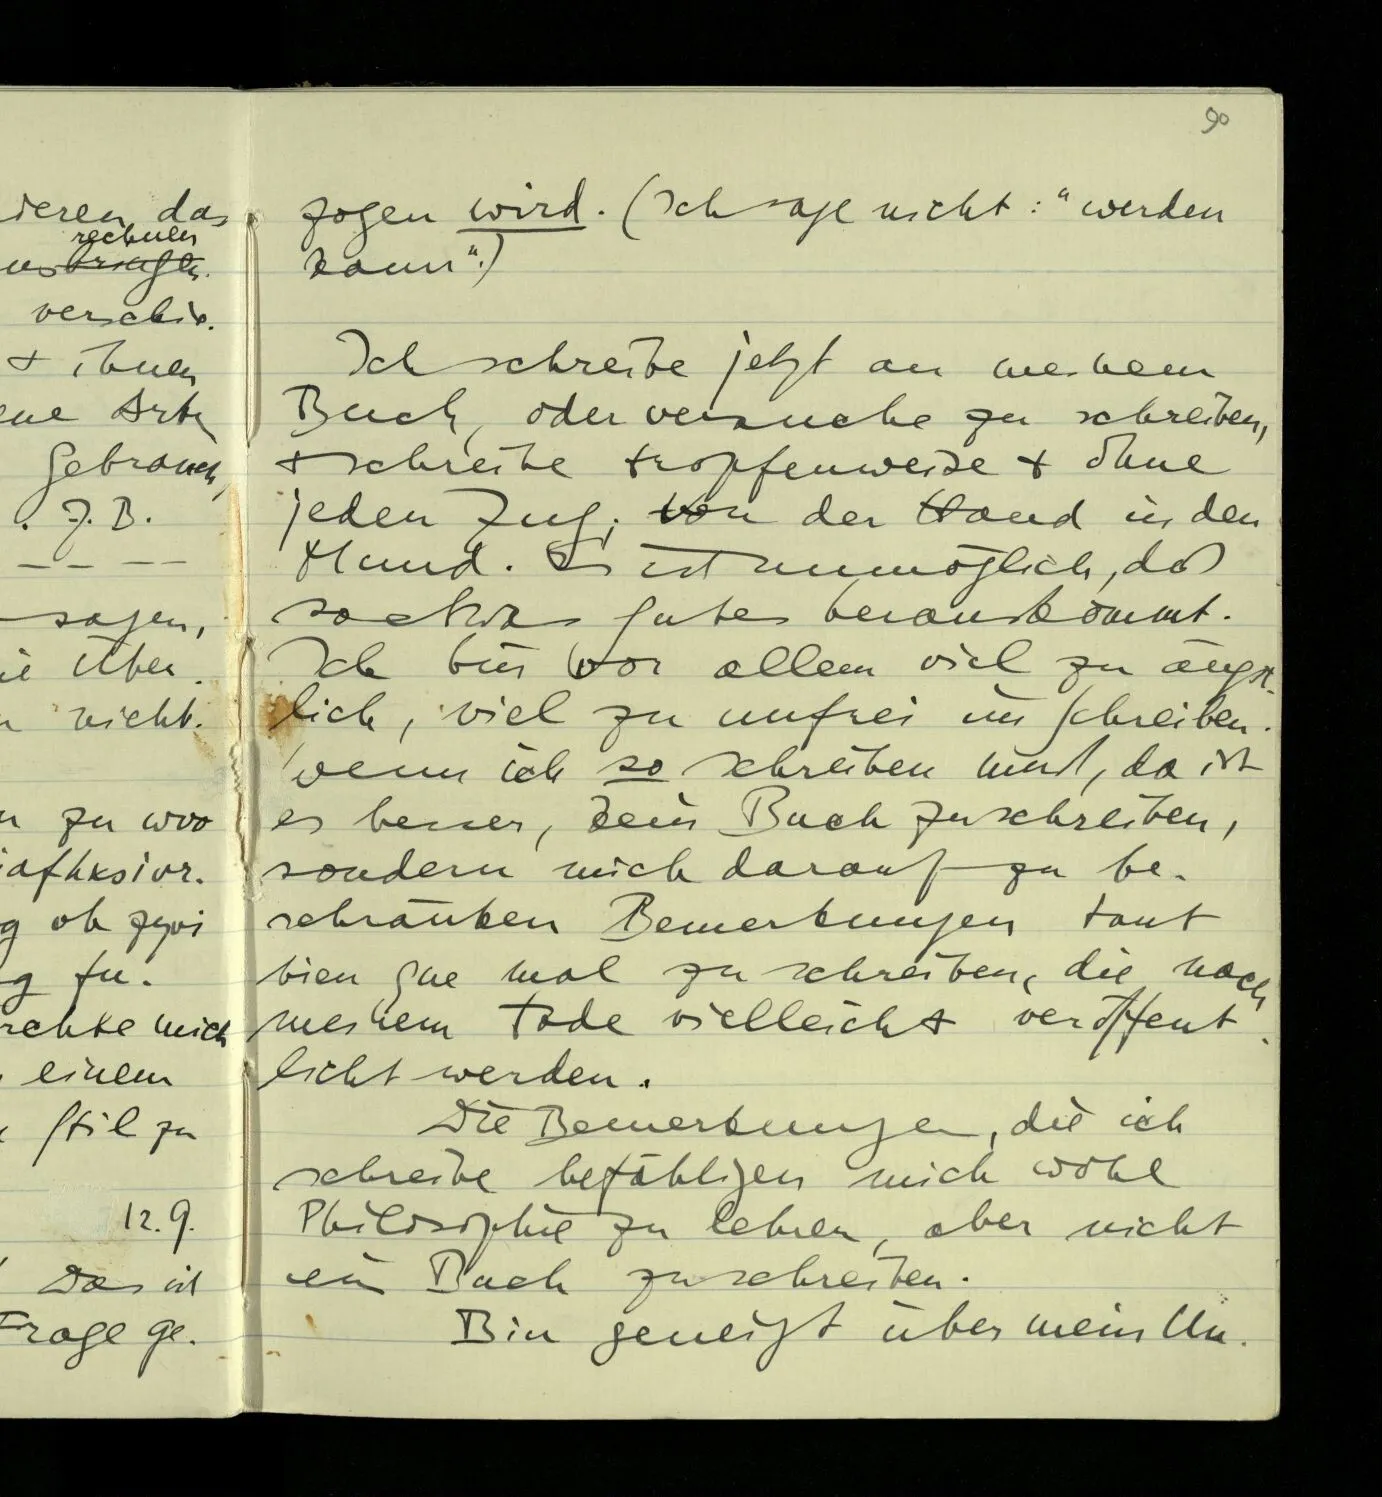 90
ieren, das
rechnen
verschie.
+ ihnen
ene Arten
Gebrauch,
. Z.B.
– – – –
sagen,
ie Über.
n nicht.
n zu woo
g ob zwi
g zu.
rchte mich
einem
Stil zu
12.9.
Das ist
Frage ge.
zogen wird. (Ich sage nicht: "werden
kann".)
Ich schreibe jetzt an meinem
Buch, oder versuche zu schreiben,
+ schreibe tropfenweise + ohne
jeden Zug; von der Hand in den
Mund. Es ist unmöglich, daß
so etwas gutes herauskommt.
Ich bin vor allem viel zu ängst-
lich, viel zu unfrei im schreiben.
Wenn ich so schreiben muß, da ist
es besser, kein Buch zu schreiben,
sondern mich darauf zu be.
schränken Bemerkungen tant
bien que mal zu schreiben, die nach
meinem Tode vielleicht veröffent.
licht werden.
Die Bemerkungen, die ich
schreibe befähigen mich wohl
Philosophie zu lehren, aber nicht
ein Buch zu schreiben.
Bin geneigt über mein Un.